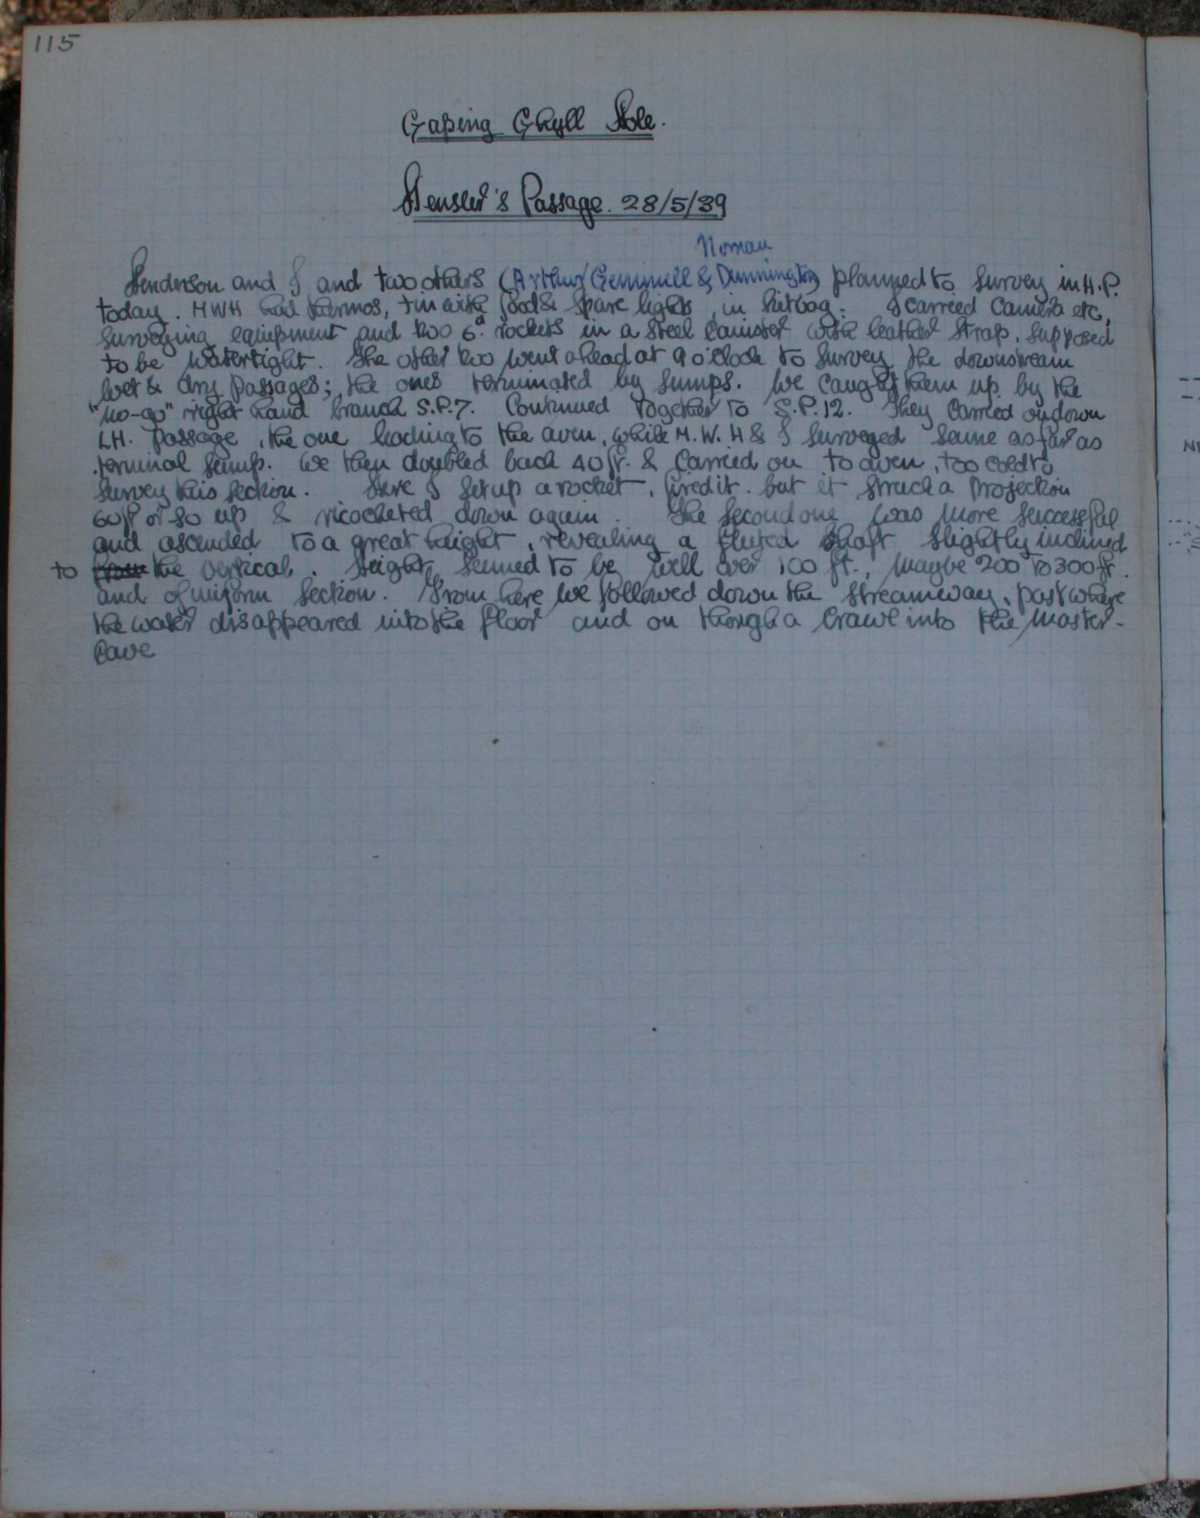 115
Gaping Ghyll Hole.
Hensler's Passage. 28/5/39
Norman
Henderson and I and two others (Arthur Gemmell & Dunnington) planned to survey in H.P.
today. MWH had thermos, tin with food & spare lights, in kitbag. I carried camera etc,
surveying equipment and two 6d rockets in a steel canister with leather strap, supposed
to be watertight. The other two went ahead at 9 o'clock to survey the downstream
wet & dry passages; the ones terminated by sumps. We caught them up by the
"no-go" right hand branch S.P.7. Continued together to S.P.12. They carried on down
L.H. passage, the one leading to the aven, while M.W.H & I surveyed same as far as
terminal sump. We then doubled back 40 ft. & carried on to aven, too cold to
survey this section. Here I set up a rocket, fired it. but it struck a projection
60ft or so up & ricocheted down again. The second one was more successful
and ascended to a great height, revealing a fluted shaft slightly inclined
to the vertical. Height seemed to be well over 100 ft., maybe 200 to 300 ft.
and of uniform section. From here we followed down the streamway, past where
the water disappeared into the floor and on though a crawl into the master-
cave